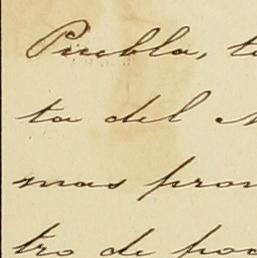 Puebla, t
ta del
mas pron
tro de poc